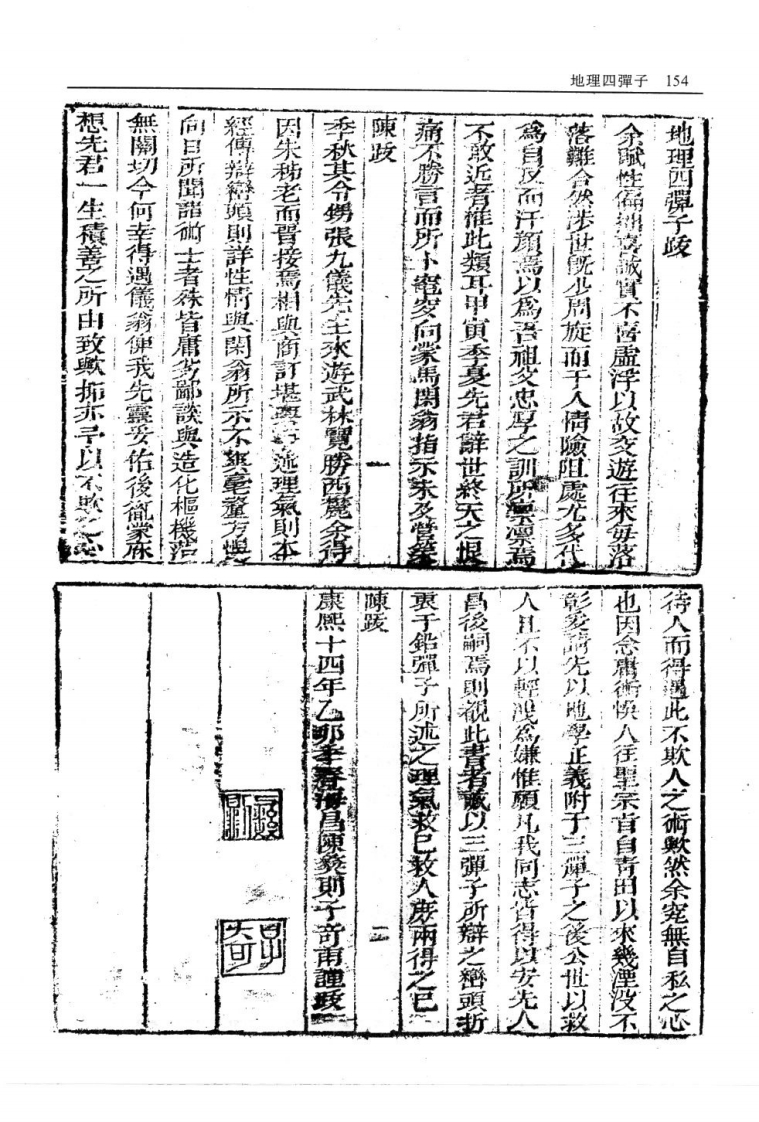 地理四彈子 154
地理四彈子跋
余賦性偏拙喜誠實不喜虛浮以故交遊往來每落
落難合然涉世既少周旋而于人情險阻處尤多代
為自反而汗顏焉以為吾祖父忠厚之訓所凜凜焉
不敢近者惟此類耳甲寅季夏先君辭世終天之恨
痛不勝言而所卜窀穸向蒙馬閑翁指示未及營葬
陳跋
一
季秋其令甥張九儀先生來遊武林覽勝西麓余得
因朱姊老而晋接焉相與商訂堪輿 述理氣則本
經傳辯巒頭則詳性情與閑翁所示不爽毫釐方悞
向日所聞諸術士者殊皆庸劣鄙談與造化樞機沿
無關切今何幸得遇儀翁俾我先靈妥佑後胤蒙庥
想先君一生積善之所由致歟抑亦予以不欺之心
待人而得遇此不欺人之術歟然余寔無自私之心
也因念庸術悞人往聖宗旨自青田以來幾湮沒不
彰爰請先以地學正義附于三彈子之後公世以救
人且不以輕淺為嫌惟願凡我同志皆得以安先人
昌後嗣焉則觀此書者誠以三彈子所辯之巒頭折
衷于鉛彈子所述之理氣救己救人庶兩得之已
陳跋
二
康熙十四年乙卯季春海昌陳 則子奇甫謹跋